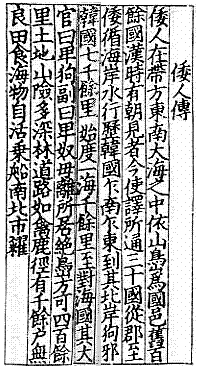 倭人傳
倭人在帶方東南大海之中依山島爲國邑舊百
餘國漢時有朝見者今使譯所通三十國從郡至
倭循海岸水行歷韓國乍南乍東到其北岸狗邪
韓國七千餘里始度一海千餘里至對海國其大
官曰卑狗副曰卑奴毋離所居絶島方可四百餘
里土地山險多深林道路如禽鹿徑有千餘戶無
良田食海物自活乗船南北市糴